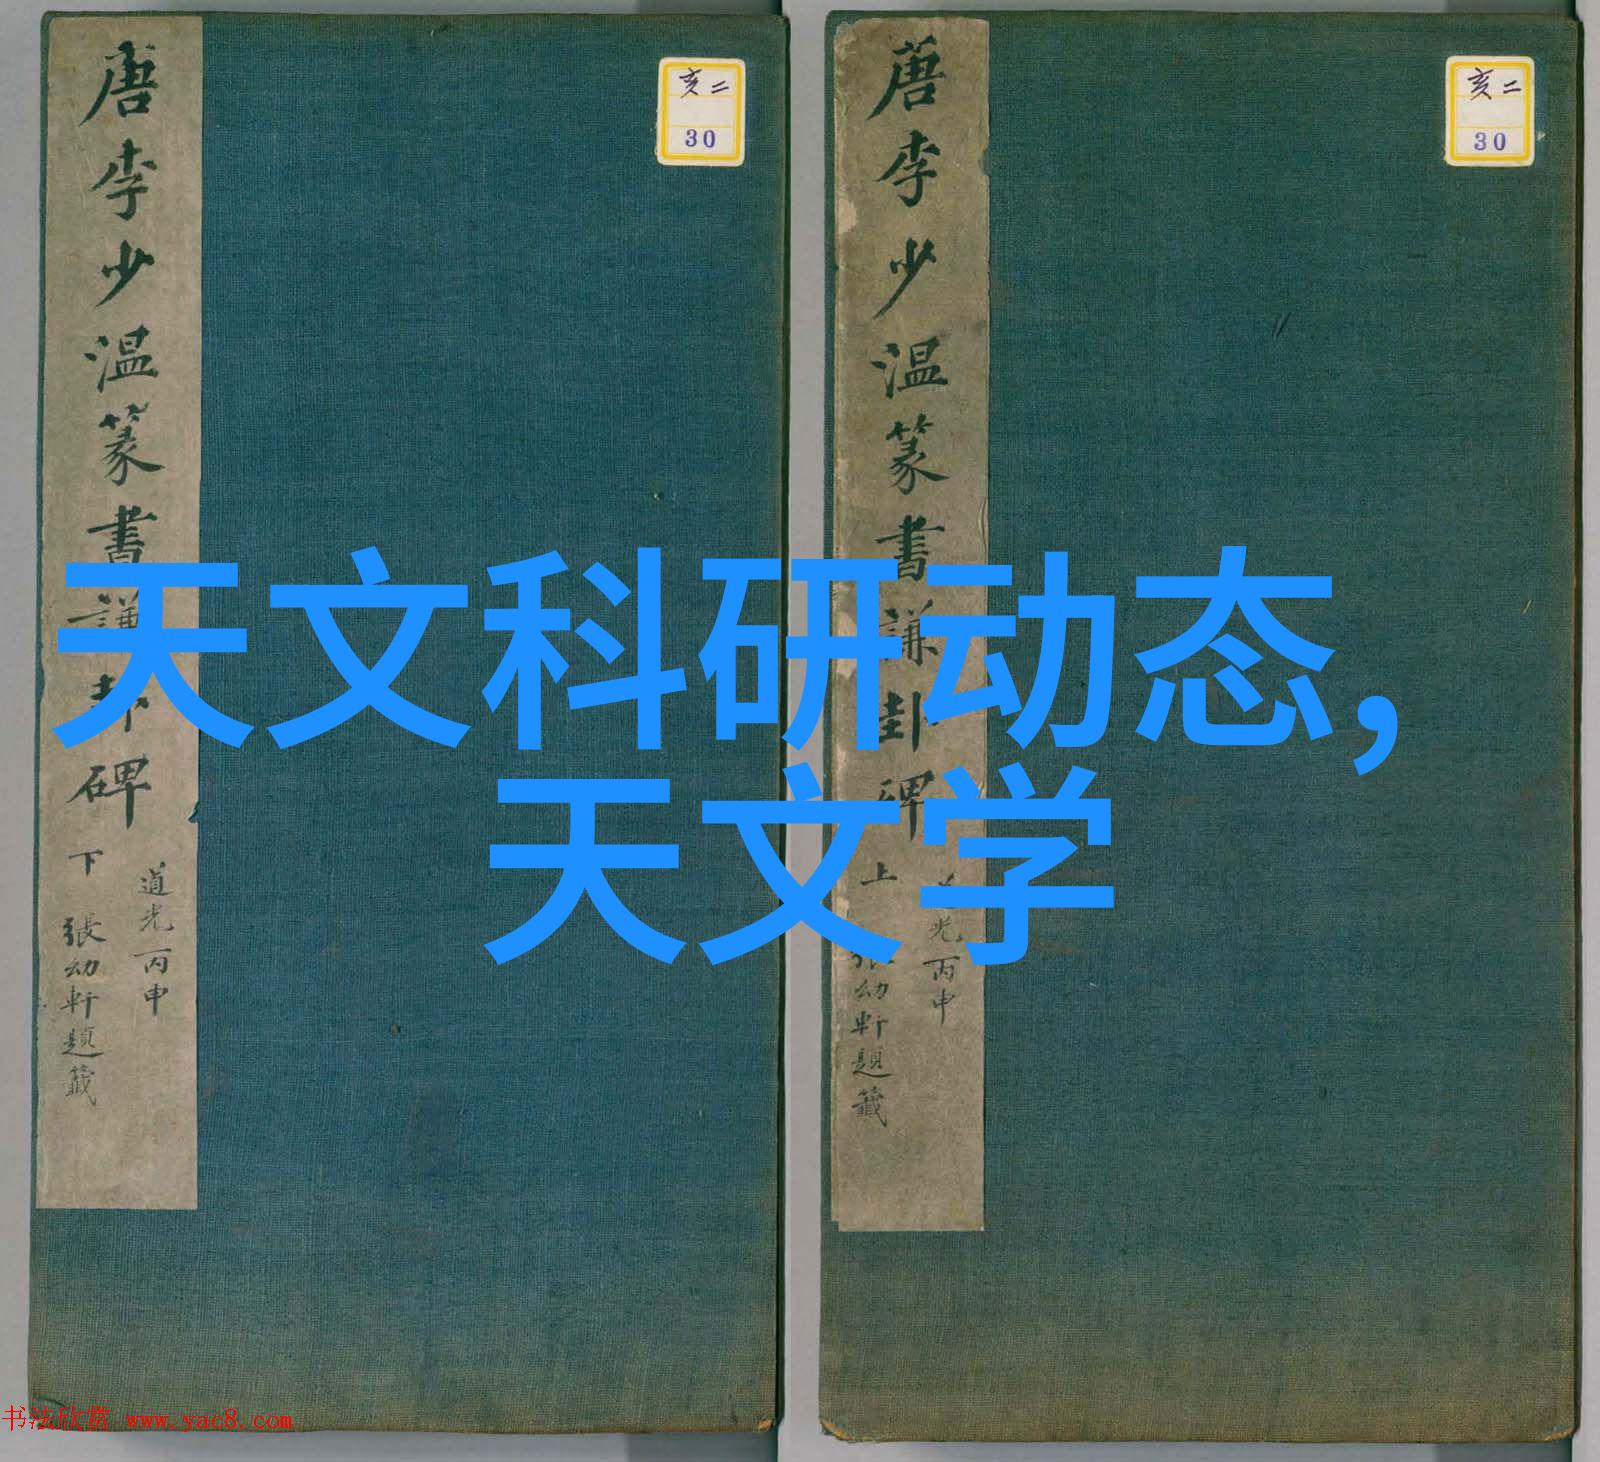 唐李少温篆書謙卦碑 下
道光丙申
張幼軒題籤
亥二
30
唐李少温篆書謙卦碑 上
光丙申
張幼軒題籤
亥二
30
天文科研动态,
天文学
书法欣赏 www.yac8.com